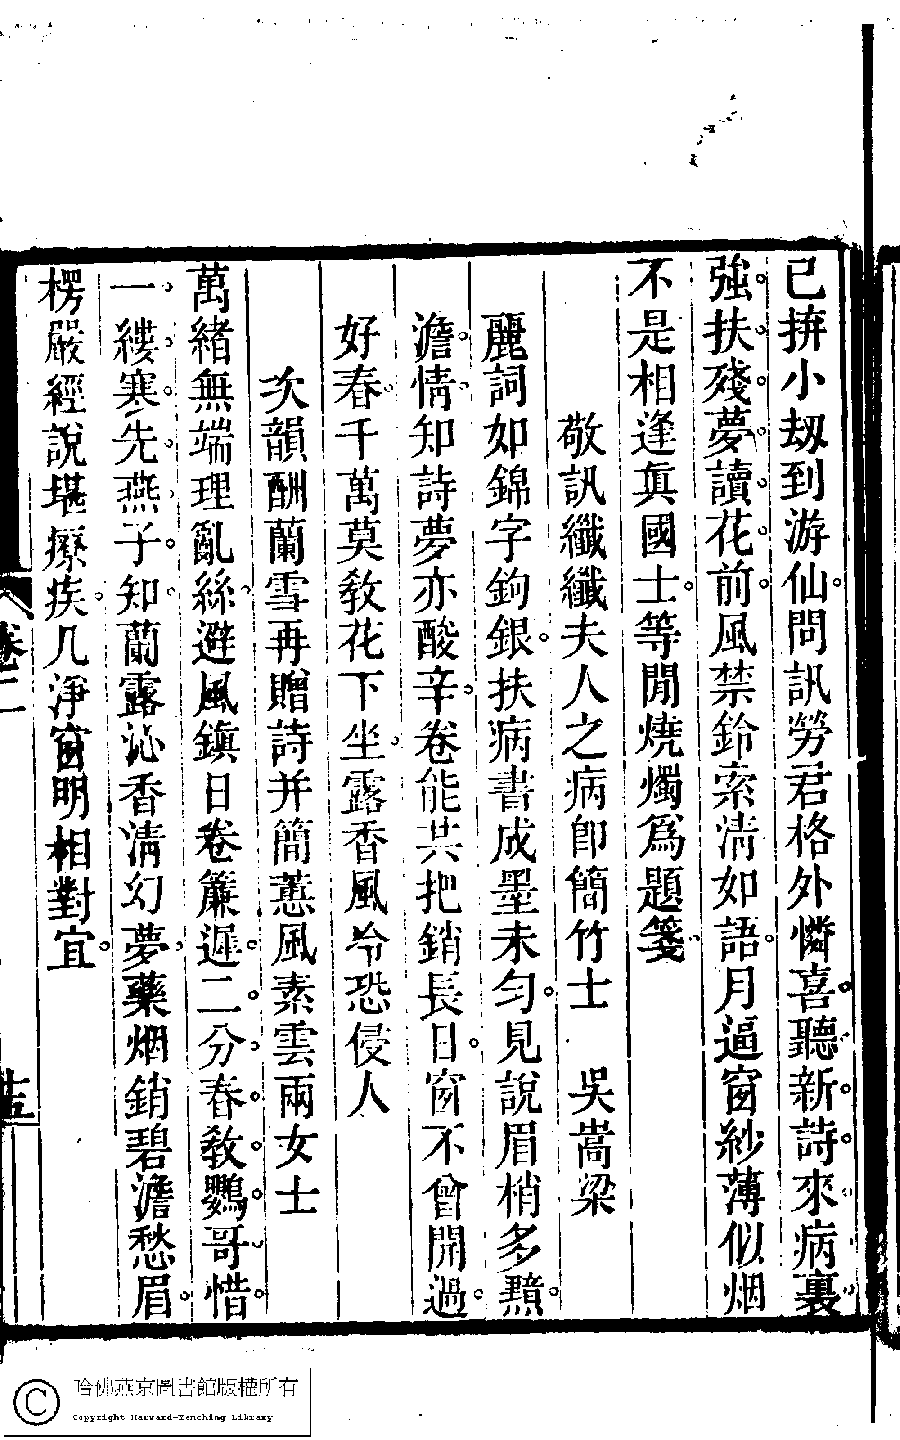 已拚小刼到游仙問訊勞君格外憐喜聽新詩來病裏
強扶殘夢讀花前風禁鈴索清如語月逼窗紗薄似烟
不是相逢眞國士等閒燒燭爲題箋
敬訊纖纖夫人之病卽簡竹士　吳嵩梁
麗詞如錦字鉤銀扶病書成墨未勻見說眉梢多黛
澹情知詩夢亦酸辛卷能共把銷長日窗不曾開過
好春千萬莫敎花下坐露香風冷恐侵人
次韻酬蘭雪再贈詩并簡蕙風素雲兩女士
萬緒無端理亂絲避風鎭日卷簾遲二分春敎鸚哥惜
一縷寒先燕子知蘭露沁香淸幻夢藥烟銷碧澹愁眉
楞嚴經說堪療疾几淨窗明相對宜
卷二
十五
哈佛燕京圖書館版權所有
Copyright Harvard-Yenching Library